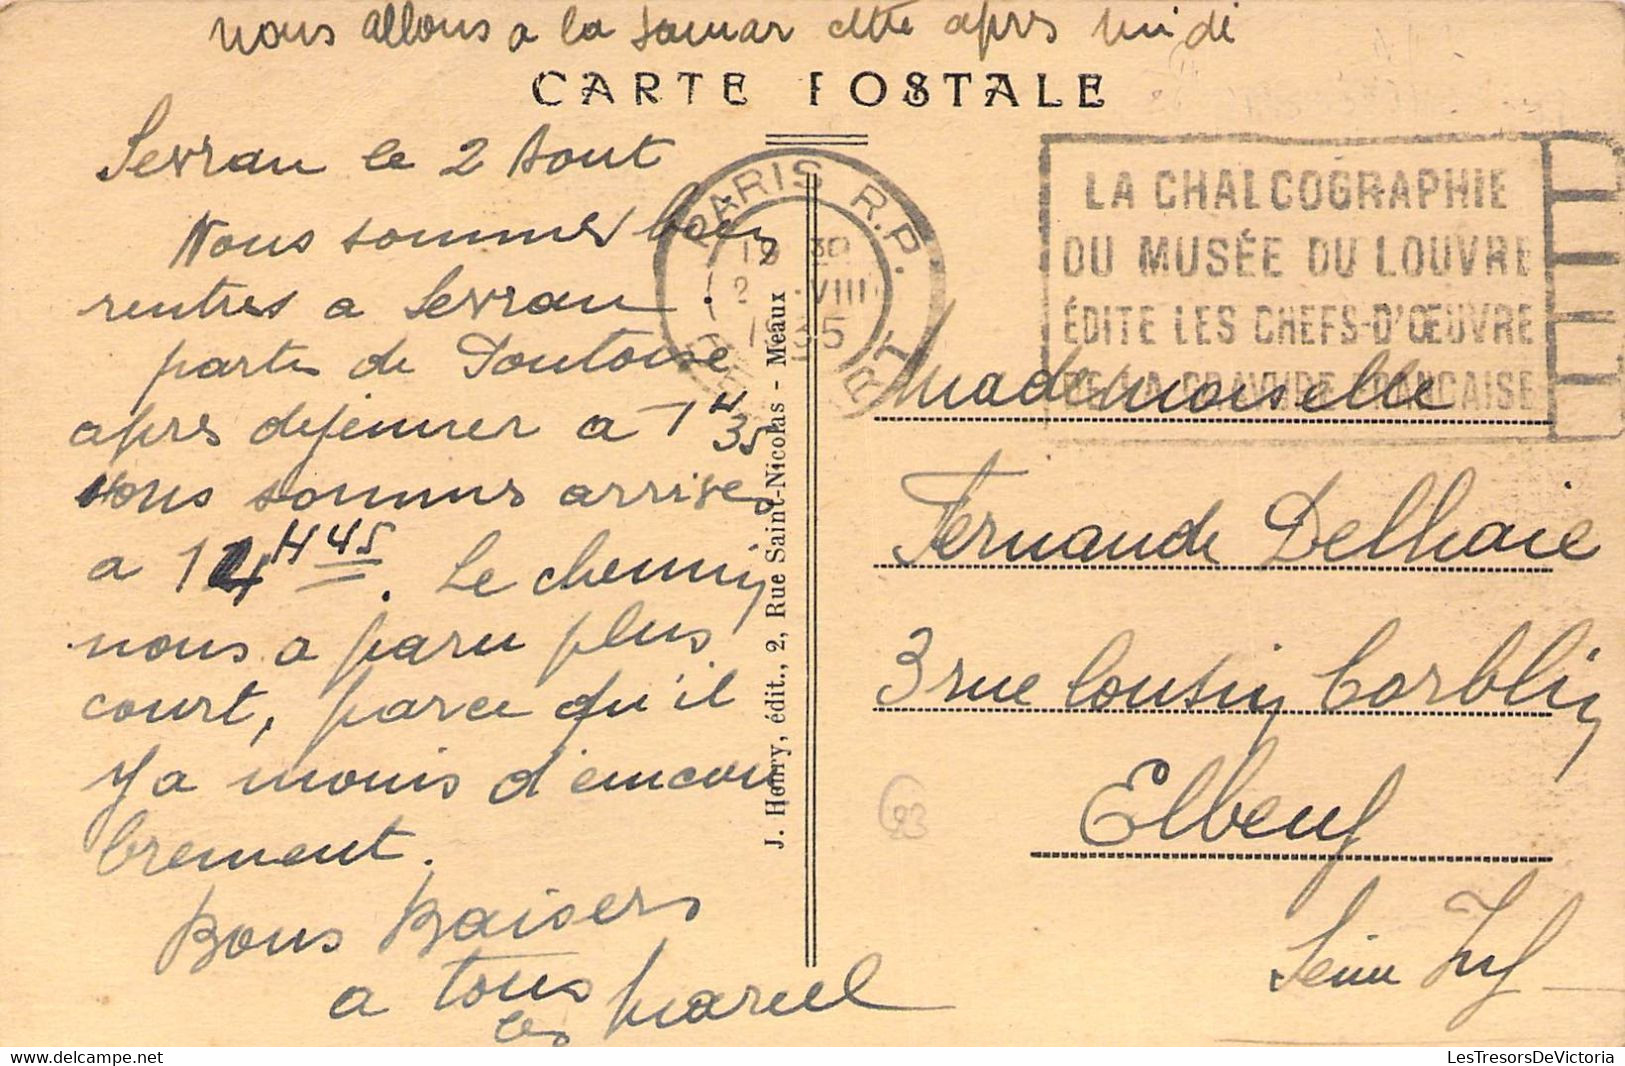 nous allons a la Samar cette apres midi
CARTE POSTALE
Sevran le 2 Aout
Nous sommes bien
rentres a Sevran.
partis de Pontoise
apres dejeuner a 1H35
nous sommes arrives
a 14H45. Le chemin
nous a paru plus
court, parce qu'il
y a moins d'encom
brement.
Bons Baisers
a tous
les Marcel
J. Henry, édit., 2, Rue Saint-Nicolas - Meaux
PARIS R.P.
19 30
2 ·VIII
1935
DEPART
LA CHALCOGRAPHIE
DU MUSÉE DU LOUVRE
ÉDITE LES CHEFS-D'ŒUVRE
DE LA GRAVURE FRANÇAISE
Mademoiselle
Fernande Delhaie
3 rue Cousin Corblin
Elbeuf
Seine Inf
93
LesTresorsDeVictoria